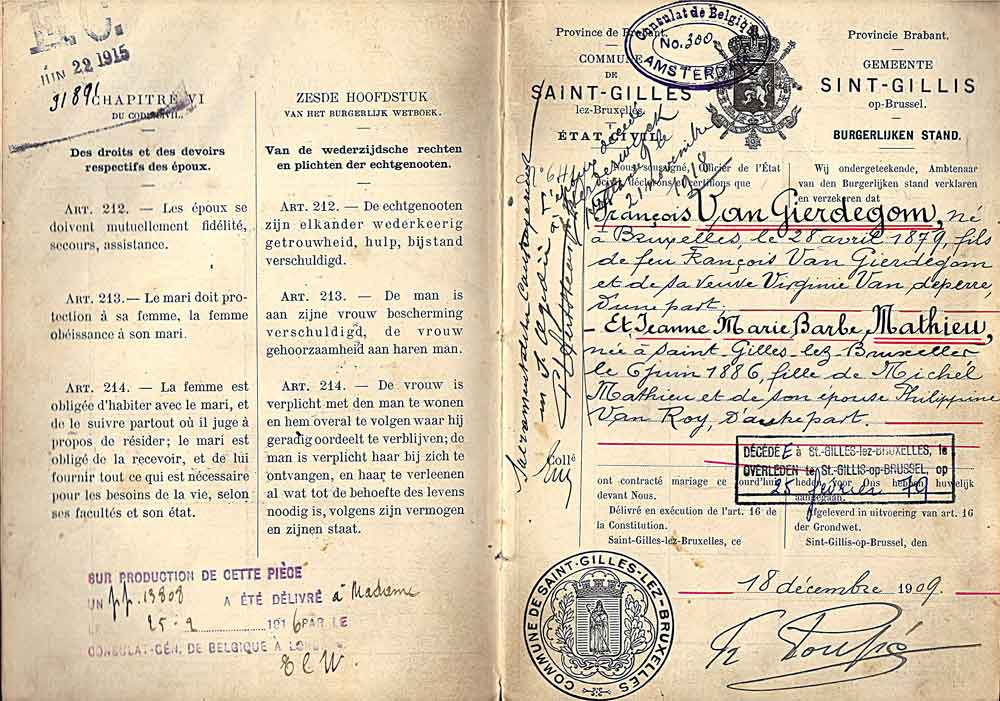 JUN 22 1915
31891
CHAPITRE VI
DU CODE CIVIL.
Des droits et des devoirs
respectifs des époux.
ART. 212. — Les époux se
doivent mutuellement fidélité,
secours, assistance.
ART. 213. — Le mari doit pro-
tection à sa femme, la femme
obéissance à son mari.
ART. 214. — La femme est
obligée d'habiter avec le mari, et
de le suivre partout où il juge à
propos de résider; le mari est
obligé de la recevoir, et de lui
fournir tout ce qui est nécessaire
pour les besoins de la vie, selon
ses facultés et son état.
ZESDE HOOFDSTUK
VAN HET BURGERLIJK WETBOEK.
Van de wederzijdsche rechten
en plichten der echtgenooten.
ART. 212. — De echtgenooten
zijn elkander wederkeerig
getrouwheid, hulp, bijstand
verschuldigd.
ART. 213. — De man is
aan zijne vrouw bescherming
verschuldigd, de vrouw
gehoorzaamheid aan haren man.
ART. 214. — De vrouw is
verplicht met den man te wonen
en hem overal te volgen waar hij
geradig oordeelt te verblijven; de
man is verplicht haar bij zich te
ontvangen, en haar te verleenen
al wat tot de behoefte des levens
noodig is, volgens zijn vermogen
en zijnen staat.
SUR PRODUCTION DE CETTE PIÈCE
UN pp. 13808 A ÉTÉ DÉLIVRÉ à Madame
LE 25-2 1916 PAR LE
CONSULAT-GÉN. DE BELGIQUE À
Consulat de Belgique
No. 300
AMSTERDAM
Province de Brabant.
COMMUNE
DE
SAINT-GILLES
lez-Bruxelles.
ÉTAT CIVIL.
Provincie Brabant.
GEMEENTE
SINT-GILLIS
op-Brussel.
BURGERLIJKEN STAND.
Nous soussigné, Officier de l'État
civil, déclarons et certifions que
Wij ondergeteekende, Ambtenaar
van den Burgerlijken stand verklaren
en verzekeren dat
21 novembre
1918
François Van Gierdegom, né
à Bruxelles, le 28 avril 1879, fils
de feu François Van Gierdegom
et de sa veuve Virginie Van deperre,
d'une part.
- Et Jeanne Marie Barbe Mathieu,
née à Saint-Gilles-lez-Bruxelles
le 6 juin 1886, fille de Michel
Mathieu et de son épouse Philippine
Van Roy, d'autre part.
Collé
DÉCÉDÉE à St.-GILLES-lez-BRUXELLES, le
OVERLEDEN te St.-GILLIS-op-BRUSSEL, op
25 février 79
ont contracté mariage ce jourd'hui
devant Nous.
Délivré en exécution de l'art. 16
de la Constitution.
Saint-Gilles-lez-Bruxelles, ce
heden voor Ons hebben huwelijk
aangegaan.
Afgeleverd in uitvoering van art. 16
der Grondwet.
Sint-Gillis-op-Brussel, den
18 décembre 1909.
COMMUNE DE SAINT-GILLES-LEZ-BRUXELLES